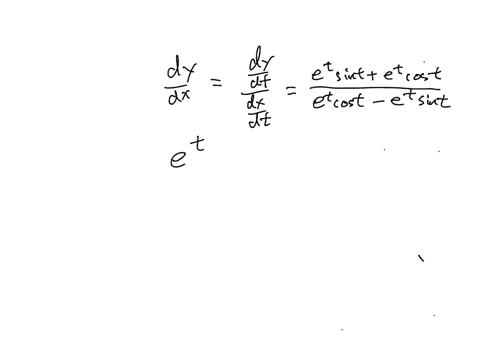 \frac{dy}{dx} = \frac{\frac{dy}{dt}}{\frac{dx}{dt}} = \frac{e^t sint + e^t cost}{e^t cost - e^t sint}
e^t